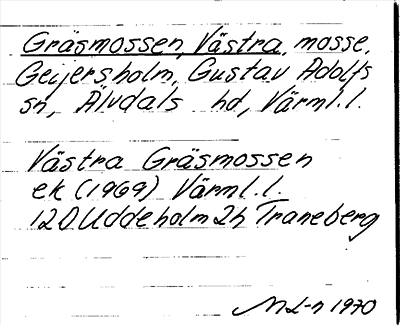 Gräsmossen, Västra, mosse,
Geijersholm, Gustav Adolfs
sn, Älvdals hd, Värml.l.
Västra Gräsmossen
ek (1969) Värml.l.
12D Uddeholm 2h Traneberg
ML-n 1970